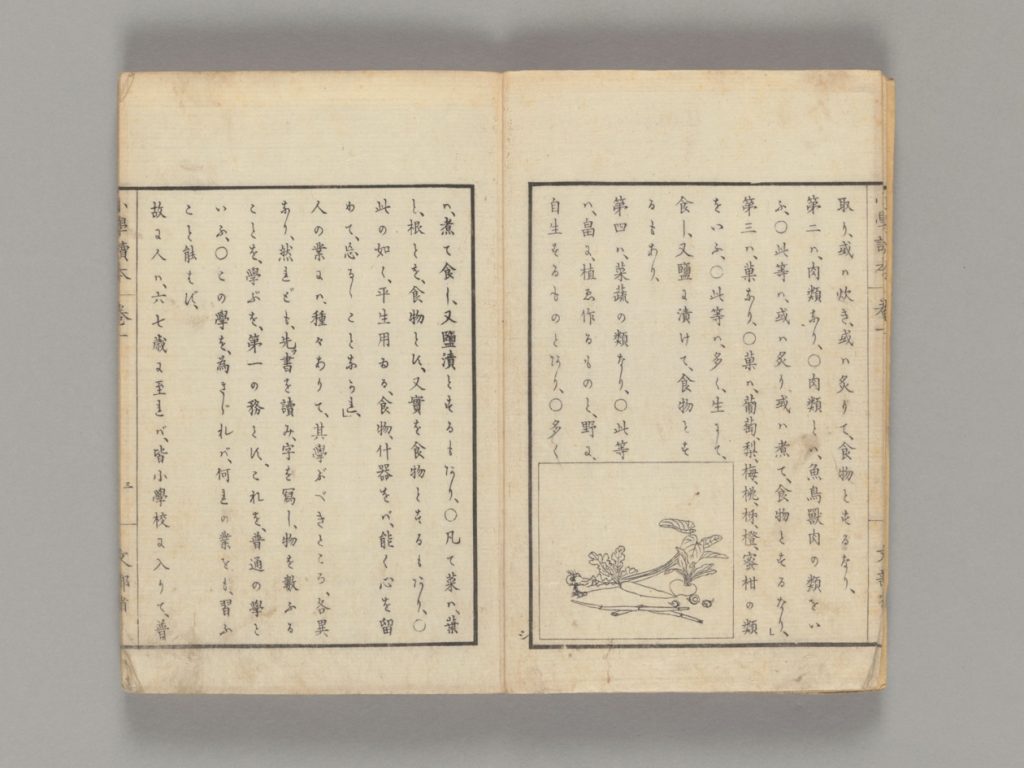 小學讀本 卷一
取り、或ハ炊き、或ハ炙りて、食物とするなり、
第二ハ、肉類あり、〇肉類とハ、魚鳥獸肉の類をい
ふ、〇此等ハ、或ハ炙り、或ハ煮て、食物とするなり、
第三ハ、菓あり、〇菓ハ、葡萄、梨、梅、桃、柹、橙、蜜柑の類
をいふ、〇此等ハ、多く、生にて、
食し、又鹽に漬けて、食物とす
るもあり、
第四ハ、菜蔬の類なり、〇此等
ハ、畠に、植ゑ作るものと、野に、
自生するものとあり、〇多く
ハ、煮て食し、又鹽漬とするもあり、〇凡て菜ハ、葉
と、根とを、食物とし、又實を食物とするもあり、〇
此の如く、平生用ゐる、食物、什器をバ、能く心を留
めて、忘るゝことなかれ、
人の業にハ、種々ありて、其學ぶべきところ、各異
あり、然れども、先書を讀み、字を寫し、物を數ふる
ことを、學ぶを、第一の務とし、これを、普通の學と
いふ、〇この學を、為さゞれバ、何れの業をも、習ふ
こと能はず、
故に人ハ、六七歳に至れバ、皆小學校に入りて、普
小學讀本 卷一 三 文部省